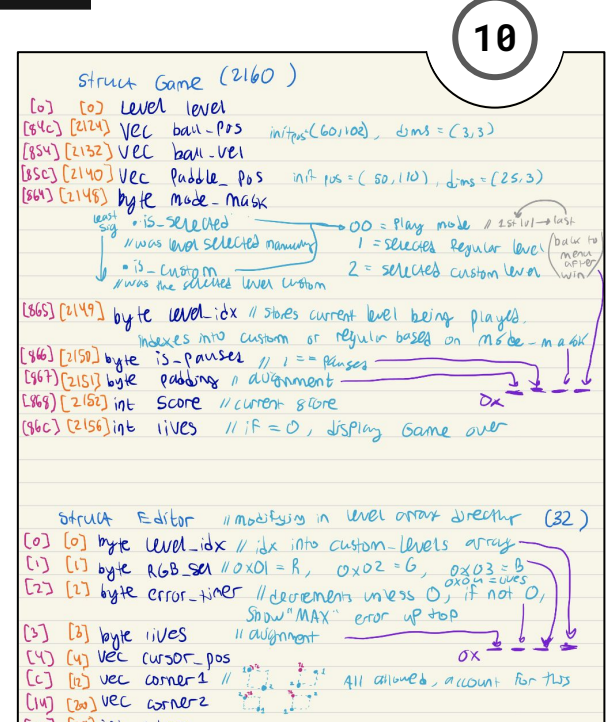 10
Struct Game (2160)
[0] [0] Level level
[84c] [2124] Vec ball_Pos initpos=(60,102), dims = (3,3)
[854] [2132] Vec ball_vel
[85C] [2140] Vec Paddle_Pos init pos = (50,110), dims = (25,3)
[864] [2148] byte mode-mask
least sig • is_selected 00 = Play mode // 1st lvl → last
// was level selected manually 1 = selected Regular level (back to menu after win)
• is_custom 2 = selected custom level
// was the selected level custom
[865] [2149] byte level_idx // stores current level being played.
indexes into custom or regular based on mode-mask
[866] [2150] byte is_pauses // 1 == Pauses
[867] [2151] byte padding // alignment
[868] [2152] int Score // current score 0x
[86c] [2156] int lives // if = 0, display Game over
Struct Editor // modifying in level array directly (32)
[0] [0] byte level_idx // idx into custom_levels array
[1] [1] byte RGB_Sel // 0x01 = R, 0x02 = G, 0x03 = B
0x04 = lives
[2] [2] byte error_timer // decrements unless 0, if not 0,
Show "MAX" error up top
[3] [3] byte lives // alignment
[4] [4] vec cursor_pos 0x
[C] [12] vec corner1 // All allowed, account for this
[14] [20] vec corner2